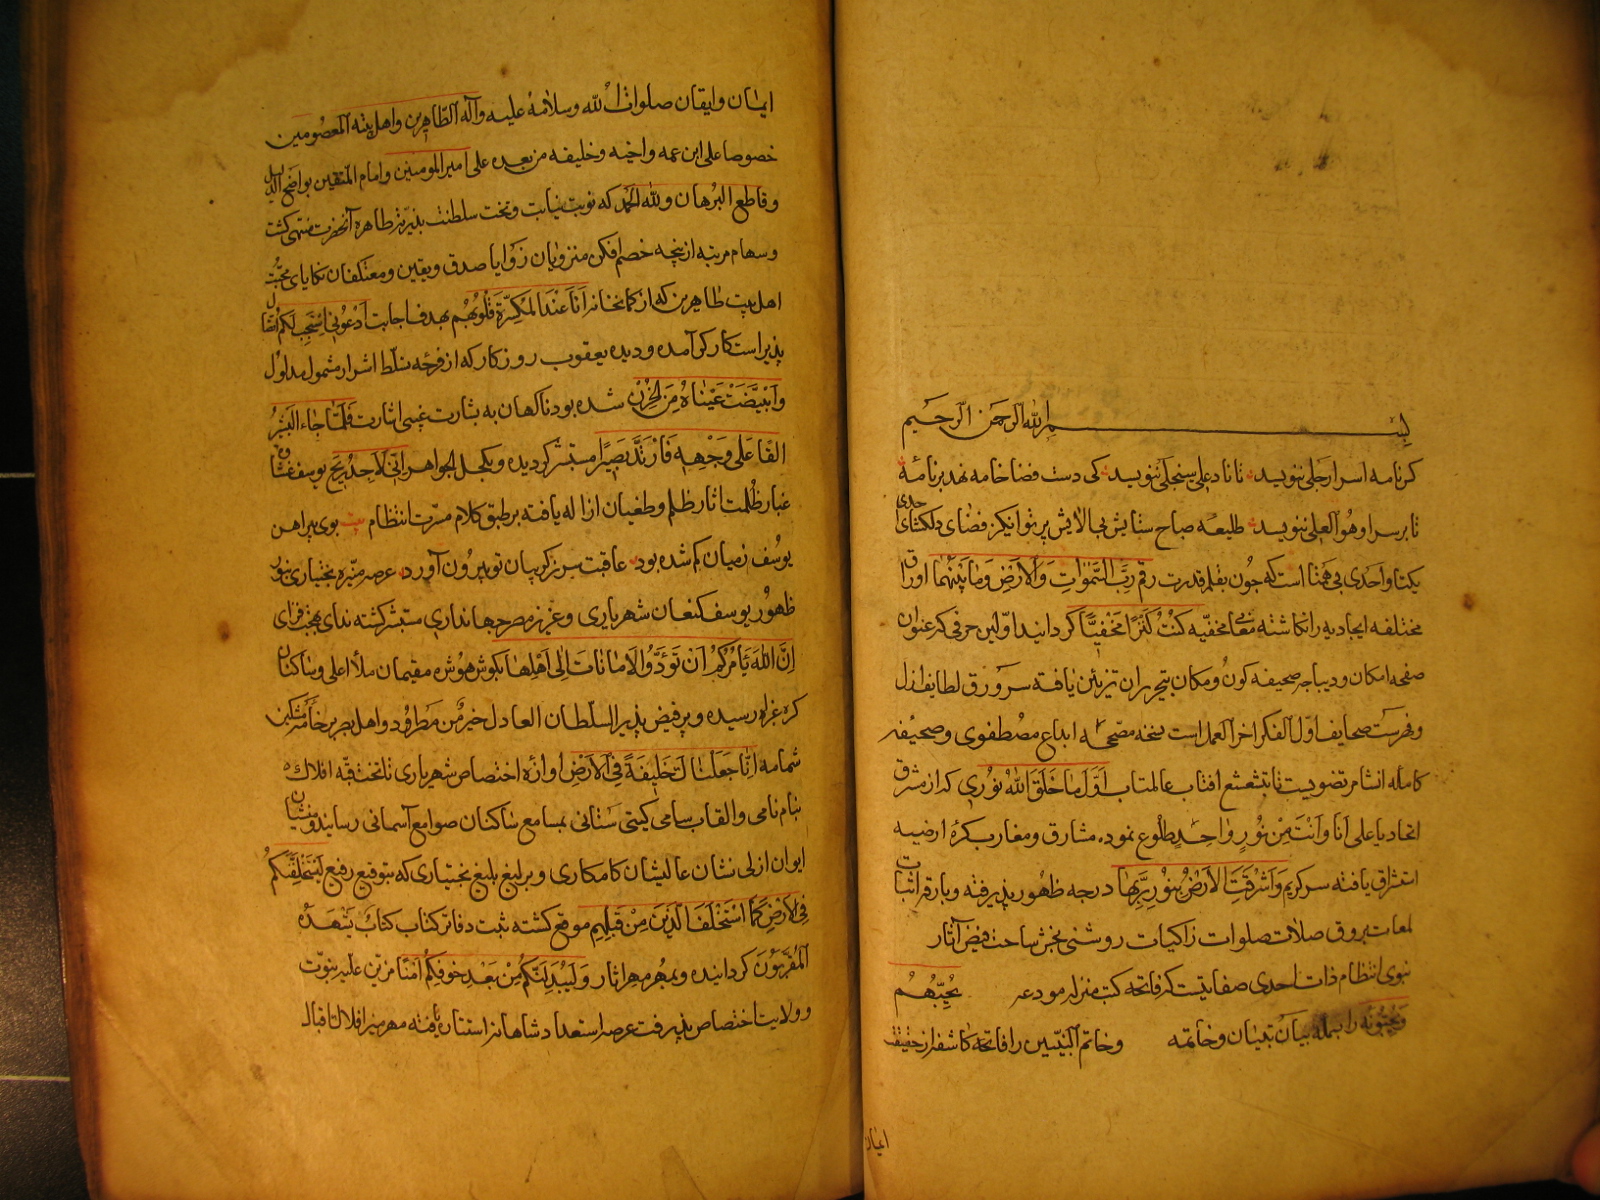 بسم الله الرحمن الرحیم
کر نامه اسرار جلی ننویسد تا ناد علی سنجلی ننویسد کی دست قضا خامه نهد بر نامه
تا بر سر او هو العلی ننویسد طلیعه صباح ستایش بی الایش پرتو انکن فضای دلکشای احدی
یکتا و احدی بی همتا است که چون بقلم قدرت رقم رب السموات والارض وما بینهما اوراق
مختلفه ایجادیه را نکاشته معمای مخفیه کنت کنزا مخفیا کردانید اولین حرفی که عنوان
صفحه امکان و دیباجه صحیفه کون و مکان بتحریر ان تزئین یافته سر ورق لطایف ازل
وفهرست صحایف اول الفکر اخر العمل است نسخه مصححه ابداع مصطفوی و صحیفه
کامله انشا مرتضویست تا بتشعشع افتاب عالمتاب اول ما خلق الله نوری که از مشرق
اتحاد یا علی انا وانت من نور واحد طلوع نموده مشارق و مغارب کره ارضیه
استشراق یافته سر کریم واشرقت الارض بنور ربها درجه ظهور پذیرفته و بارقه اثبات
لمعات بروق صلات صلوات زاکیات روشنی بخش ساحت فیض آثار
نبوی انتظام ذات احدی صفاتیست که فاتحه کتب منزله مودعه یحبهم
ویحبونه را بمله بیان تبیان و خاتمه وخاتم النبیین را فاتحه کاشف از حقیقت
ایمان
ایمان وایقان صلوات الله وسلامه علیه وآله الطاهرین واهل بیته المعصومین
خصوصا علی ابن عمه واخیه وخلیفه من بعده علی امیر المومنین وامام المتقین بواضح الدلیل
وقاطع البرهان ولله الحمد که نوبت نیابت و تخت سلطنت بذریه طاهره آنحضرت منتهی کشت
وسهام مرتبه از پنجه خصم افکن منزویان زوایا صدق و یقین و معتکفان تکایای محبت
اهل بیت طاهرین که از کمانخانه انا عند المنکسرة قلوبهم بهدف اجابت ادعونی استجب لکم اتصال
پذیر است کارکر آمده و دیده یعقوب روزکار که از فرجه تسلط اشرار مشمول مدلول
وابیضت عیناه من الحزن شده بود ناکهان به بشارت غیبی اشارت فلما جاء البشیر
القاه علی وجهه فارتد بصیرا مستبشر کردیده و بکحل الجواهر انی لاجد ریح یوسف غشاوه
غبار ظلمت اثار ظلم و طغیان ازاله یافته بر طبق کلام مسرت انتظام بیت بوی پیراهن
یوسف ز میان کم شده بود عاقبت سر ز کریبان تو بیرون آورد عرصه منیره بختیاری بنور
ظهور یوسف کنعان شهریاری و عزیز مصر جهانداری مستبشر کشته ندای بهجت فزای
ان الله یامرکم ان تؤدوا الامانات الی اهلها بکوش هوش مقیمان ملأ اعلی و ساکنان
کره غبرا رسیده و بر فیض پذیر السلطان العادل خیر من مطر و دو اهل بصر بر خامه مشکین
شمامه انا جعلناک خلیفة فی الارض اوازه اختصاص شهریاری تا تخت قبه افلاک
بنام نامی والقاب سامی کیتی ستانی بمسامع ساکنان صوامع آسمانی رسانید و منشیان
ایوان ازلی نشان عالیشان کامکاری و یرلیغ بلیغ بختیاری که بتوقیع رفیع لیستخلفنکم
فی الارض کما استخلف الذین من قبلهم موقع کشته ثبت دفاتر کتاب کتاب یشهده
المقربون کردانیده و بمهر مهر اثار ولیبدلنکم من بعد خوفکم امنا مزین علیه نبوت
و ولایت اختصاص پذیرفت عرصه استعداد شاهانه استنار یافته مهر منیر افلاک اقبال